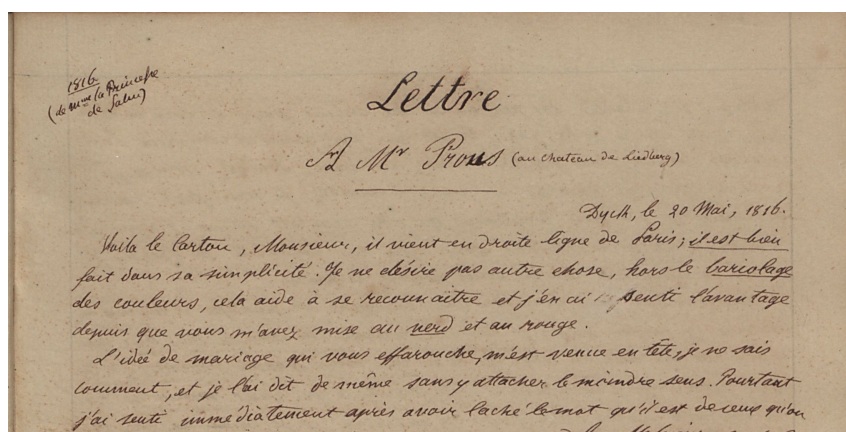 1816.
(de Mme la Princesse
de Salm)
Lettre
A Mr Prous (au chateau de Liedberg)
Dyck, le 20 Mai, 1816.
Voila le Carton, Monsieur, il vient en droite ligne de Paris; il est bien
fait dans sa simplicité. Je ne désire pas autre chose, hors le bariolage
des couleurs, cela aide à se reconnaitre et j'en ai senti l'avantage
depuis que vous m'avez mise au verd et au rouge.
L'idée de mariage qui vous effarouche, m'est venue en tête, je ne sais
comment, et je l'ai dit de même sans y attacher le moindre sens. Pourtant
j'ai senti immédiatement après avoir laché le mot qu'il est de ceux qu'on